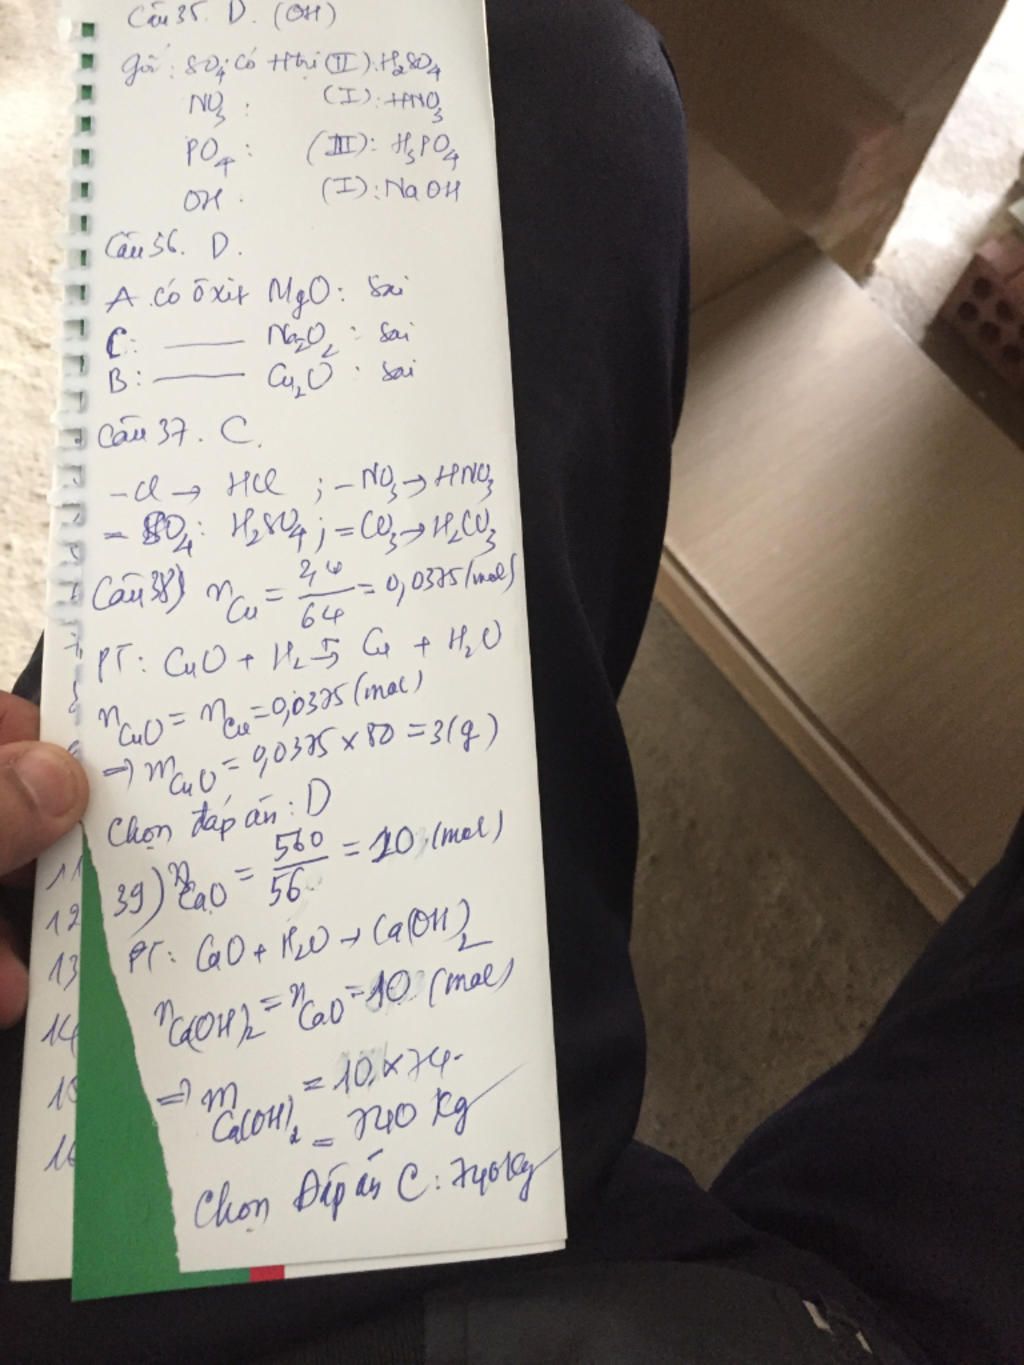 Câu 35. D. (OH)
gốc: SO4 có Htrị (II): H2SO4
NO3: (I): HNO3
PO4: (III): H3PO4
OH. (I): NaOH
Câu 36. D.
A. có ôxit MgO: Sai
C: —— Na2O2: Sai
B: —— Cu2O: Sai
Câu 37. C.
-Cl → HCl ; -NO3 → HNO3
= SO4: H2SO4 ; = CO3 → H2CO3
Câu 38) nCu = 2,4/64 = 0,0375 (mol)
PT: CuO + H2 → Cu + H2O
nCuO = nCu = 0,0375 (mol)
⇒ mCuO = 0,0375 x 80 = 3 (g)
Chọn đáp án: D
39) nCaO = 560/56 = 10 (mol)
PT: CaO + H2O → Ca(OH)2
nCa(OH)2 = nCaO = 10 (mol)
⇒ mCa(OH)2 = 10 x 74
= 740 Kg
Chọn Đáp án C: 740 Kg
11
12
13
14
15
16